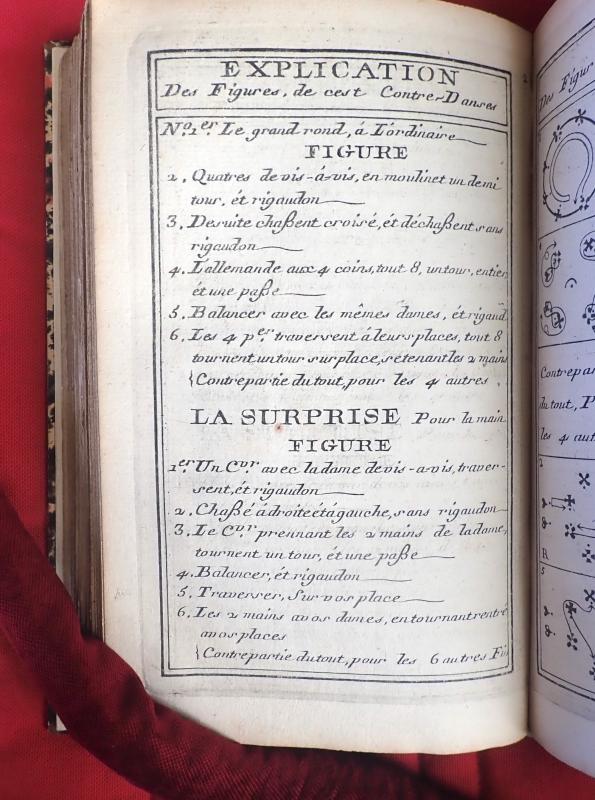 EXPLICATION
Des Figures, de cest Contre-Danses
No. 1er. Le grand rond, á L'órdinaire
FIGURE
2. Quatres de vis-á-vis, en moulinet un demi
tour, ét rigaudon
3. Desuite chaßent croisé, ét déchaßent sans
rigaudon
4. L'allemande aux 4 coins, tout 8, un tour, entier
ét une paße
5. Balancer avec les mêmes dames, ét rigaud
6. Les 4 per. traversent á leurs places, tout 8
tournent un tour sur place, se tenant les 2 mains
Contrepartie du tout, pour les 4 autres
LA SURPRISE Pour la main
FIGURE
1er Un Cvr. avec la dame de vis-a-vis, traver-
sent, ét rigaudon
2. Chaßé á droite ét á gauche, sans rigaudon
3. Le Cvr. prennant les 2 mains de la dame,
tournent un tour, ét une paße
4. Balancer, ét rigaudon
5. Traverser, Sur vos place
6. Les 2 mains a vos dames, en tournant rentré
a vos places
Contrepartie du tout, pour les 6 autres Fi
Des Figur
Contrepar
du tout, P
les 4 aut
2
R
5